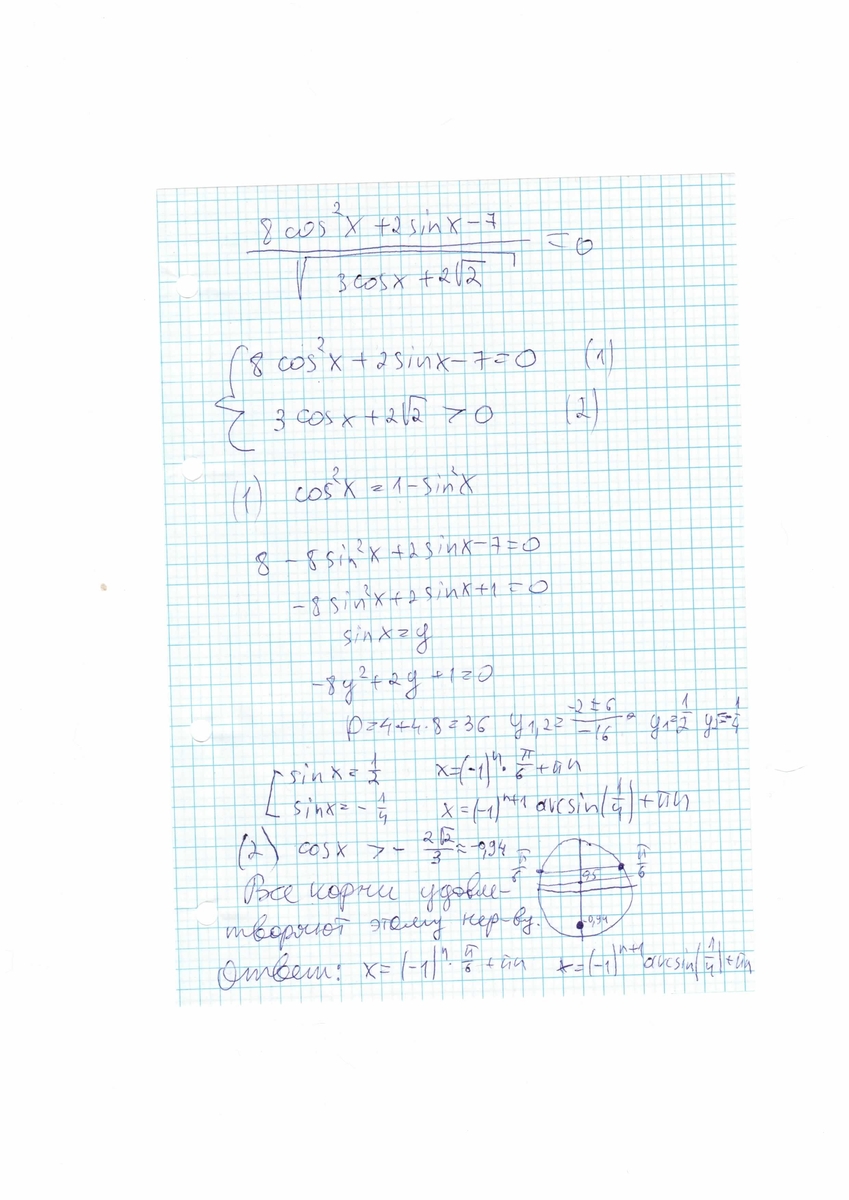 (8cos²x + 2sinx - 7) / √(3cosx + 2√2) = 0
{ 8cos²x + 2sinx - 7 = 0 (1)
3cosx + 2√2 > 0 (2)
(1) cos²x = 1 - sin²x
8 - 8sin²x + 2sinx - 7 = 0
-8sin²x + 2sinx + 1 = 0
sinx = y
-8y² + 2y + 1 = 0
D = 4 + 4·8 = 36 y1,2 = (-2 ± 6)/(-16) = y1 = 1/2 y2 = -1/4
[ sinx = 1/2 x = (-1)ⁿ · π/6 + πn
sinx = -1/4 x = (-1)ⁿ⁺¹ arcsin(1/4) + πn
(2) cosx > - 2√2/3 ≈ -0,94
π/6 0,5 π/6
Все корни удовле-
творяют этому нер-ву. -0,94
Ответ: x = (-1)ⁿ · π/6 + πn x = (-1)ⁿ⁺¹ arcsin(1/4) + πn